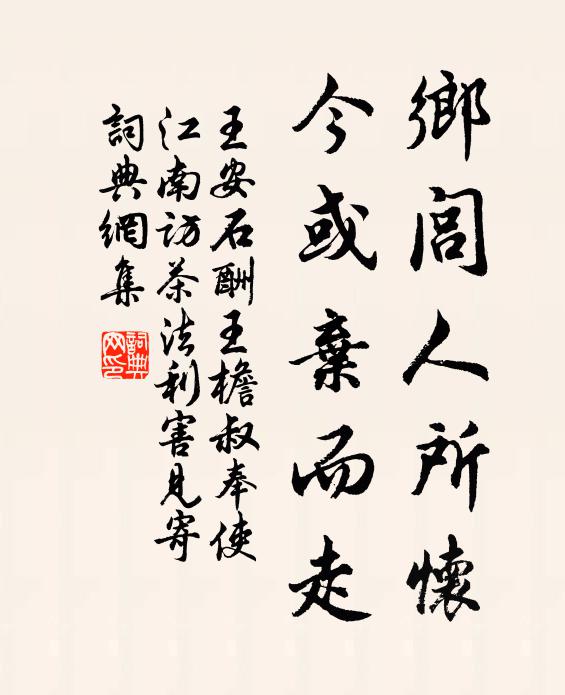 鄉閭人所懷
今或棄而走
王安石酬王檐叔奉使
江南訪茶法利害見寄
詞典網集
詞典網印